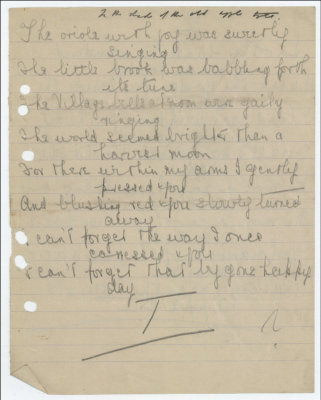 In the shade of the old apple tree
The oriole with joy was sweetly
singing
The little brook was babbling forth
its tune
The Village bells at noon were gaily
ringing
The world seemed brighter than a
harvest moon
For there within my arms I gently
pressed you
And blushing red you slowly turned
away
I can't forget the way I once
caressed you
I can't forget that by gone happy
day